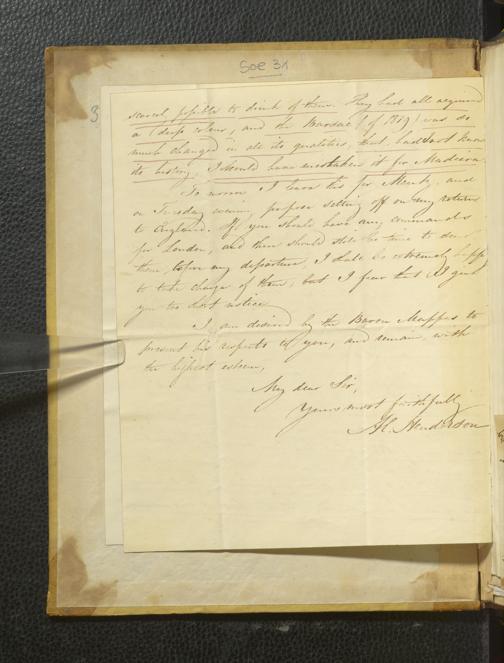 Soe 3x
3
scarcel possible to drink of them. They had all acquired
a deep colour, and the (of 1809) was so
much changed in all its qualities, that, had I not known
its history, I should have mistaken it for Madeira.
To morrow I leave this for and
on Tuesday propose setting off on my return
to England. If you should have any commands
for London, and there should still be time to
them, before my departure, I shall be extremely happy
to take charge of them; but I fear that I give
you too short notice.
I am desired by the Baron to
present his respects to you, and remain, with
the highest esteem,
My dear Sir,
Yours most faithfully
Al. Henderson